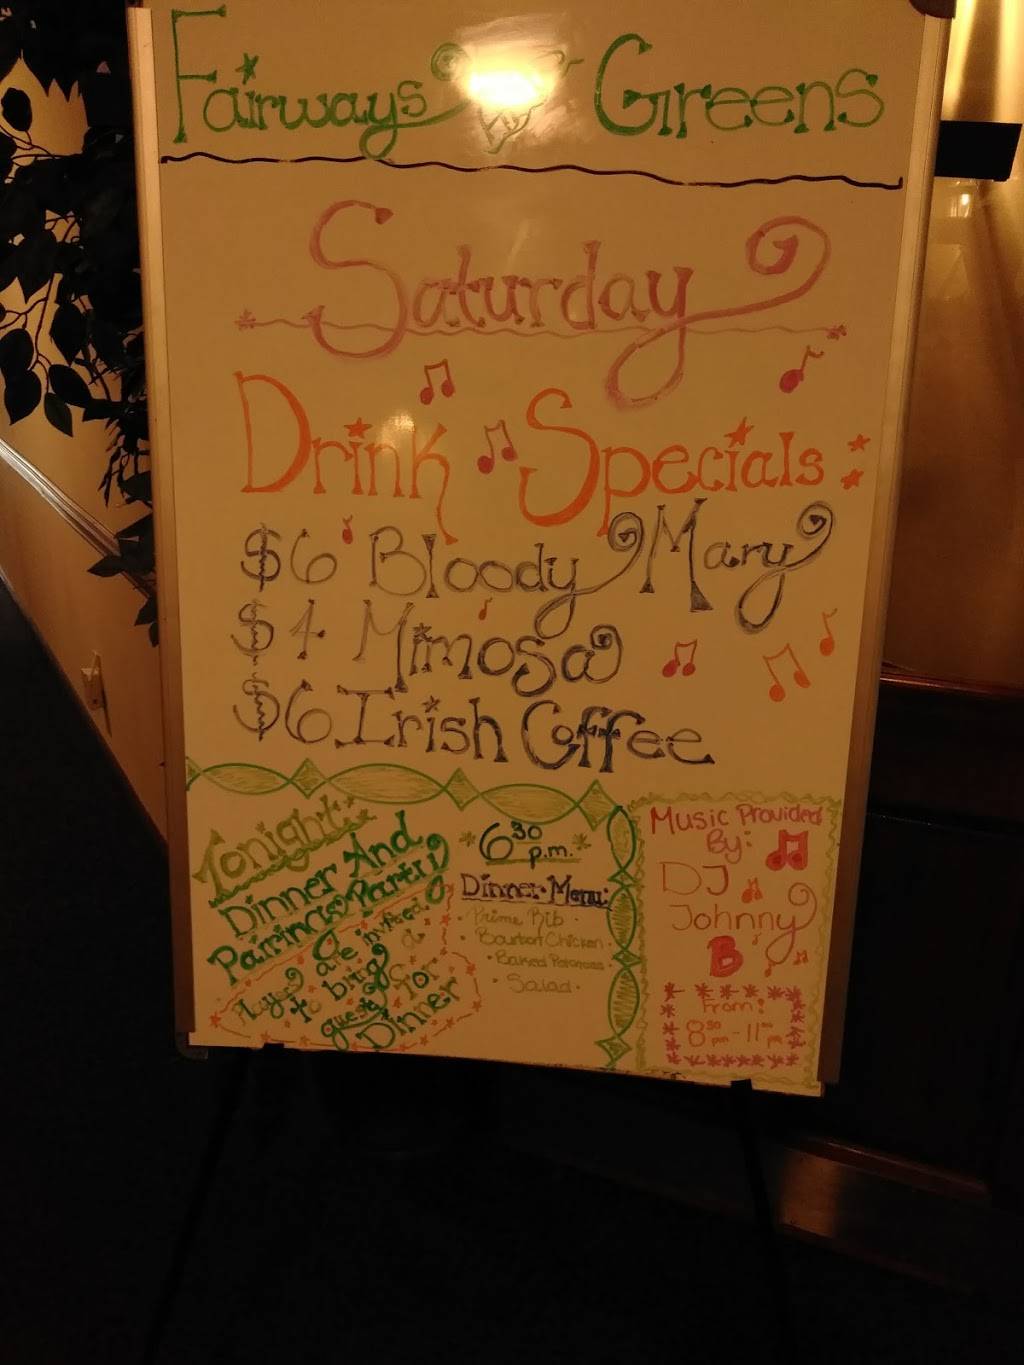 Fairways Greens
Saturday
Drink Specials
$6 Bloody Mary
$4 Mimosa
$6 Irish Coffee
Tonight:
Dinner And
Pairings Party
Players are invited
to bring a
guest for
Dinner
6³⁰ p.m.
Dinner Menu:
• Prime Rib •
• Bourbon Chicken •
• Baked Potatoes •
• Salad •
Music Provided
By:
DJ
Johnny
B
From:
8³⁰ pm - 11³⁰ pm